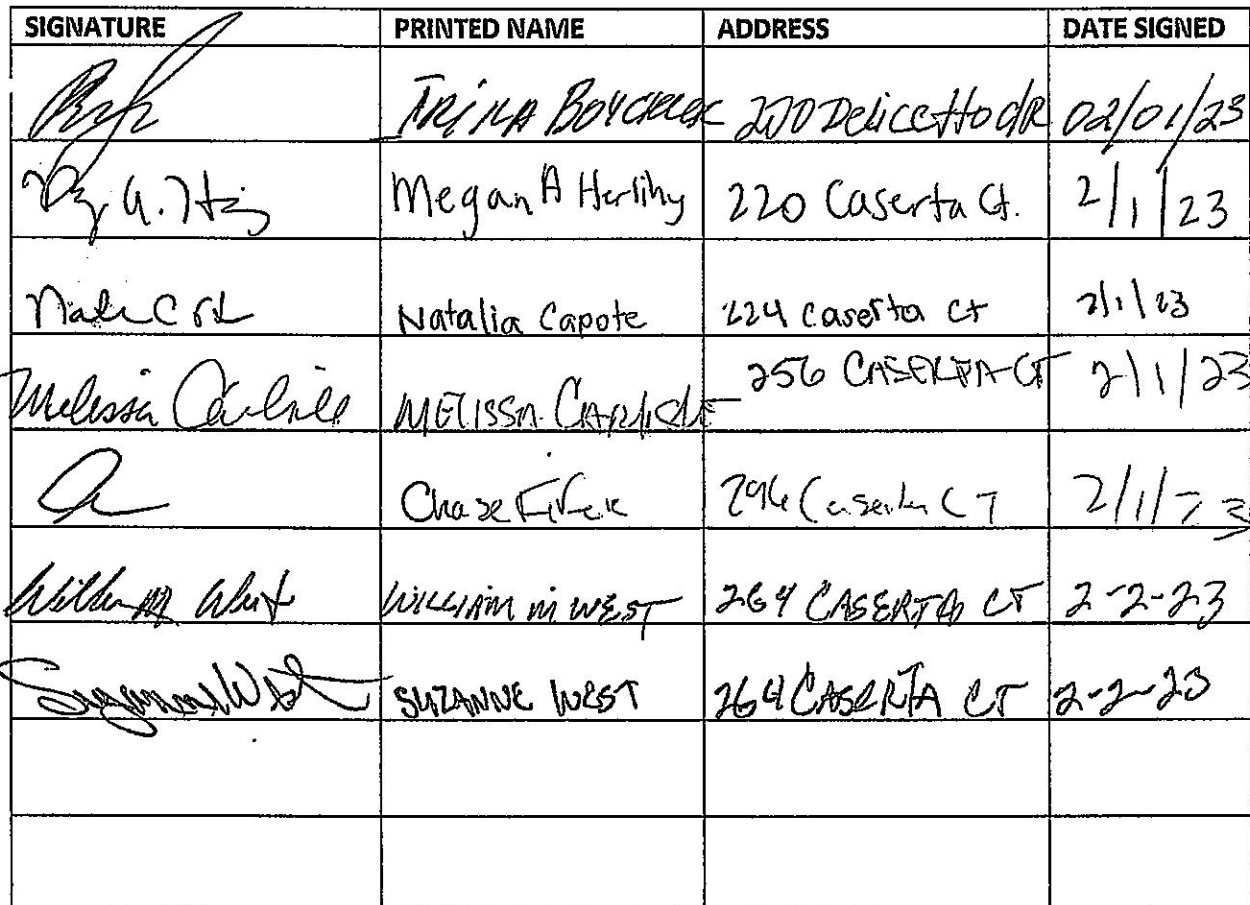 SIGNATURE PRINTED NAME ADDRESS DATE SIGNED
TRINA 02/01/23
Megan A Herlihy 220 Caserta Ct. 2/1/23
Natalia Capote 224 Caserta Ct 2/1/23
Melissa Carlisle MELISSA CARLISLE 256 CASERTA CT 2/1/23
Chase 296 Caserta CT 2/1/23
William M West WILLIAM M WEST 264 CASERTA CT 2-2-23
Suzanne West SUZANNE WEST 264 CASERTA CT 2-2-23